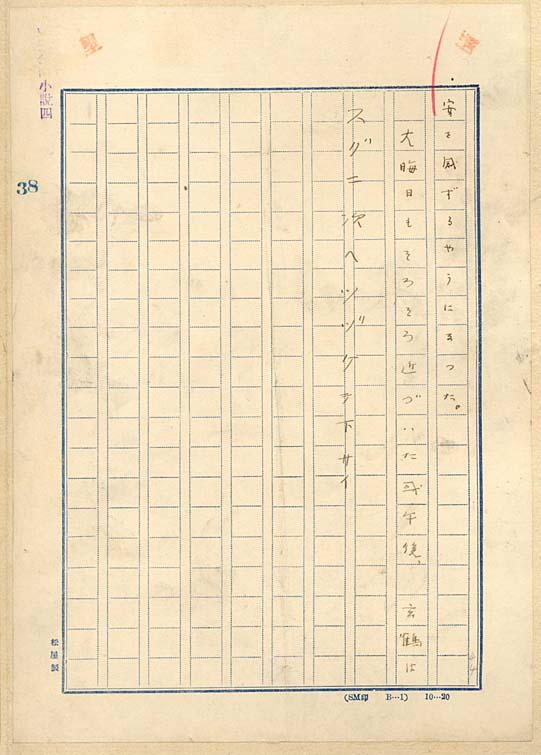 安を感ずるやうになつた。
大晦日もそろそろ近づいた或午後、玄鶴は
スグニ次ヘツヅケテ下サイ
小説四
38
松屋製
(SM印 B…1) 10…20